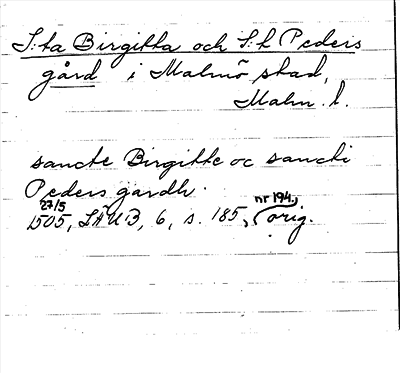 S:ta Birgitta och S:t Peders
gård i Malmö stad,
Malm. l.
sancte Birgitte oc sancti
Peders gardh.
27/5 nr 194.,
1505, LÄU 3, 6, s. 185, orig.